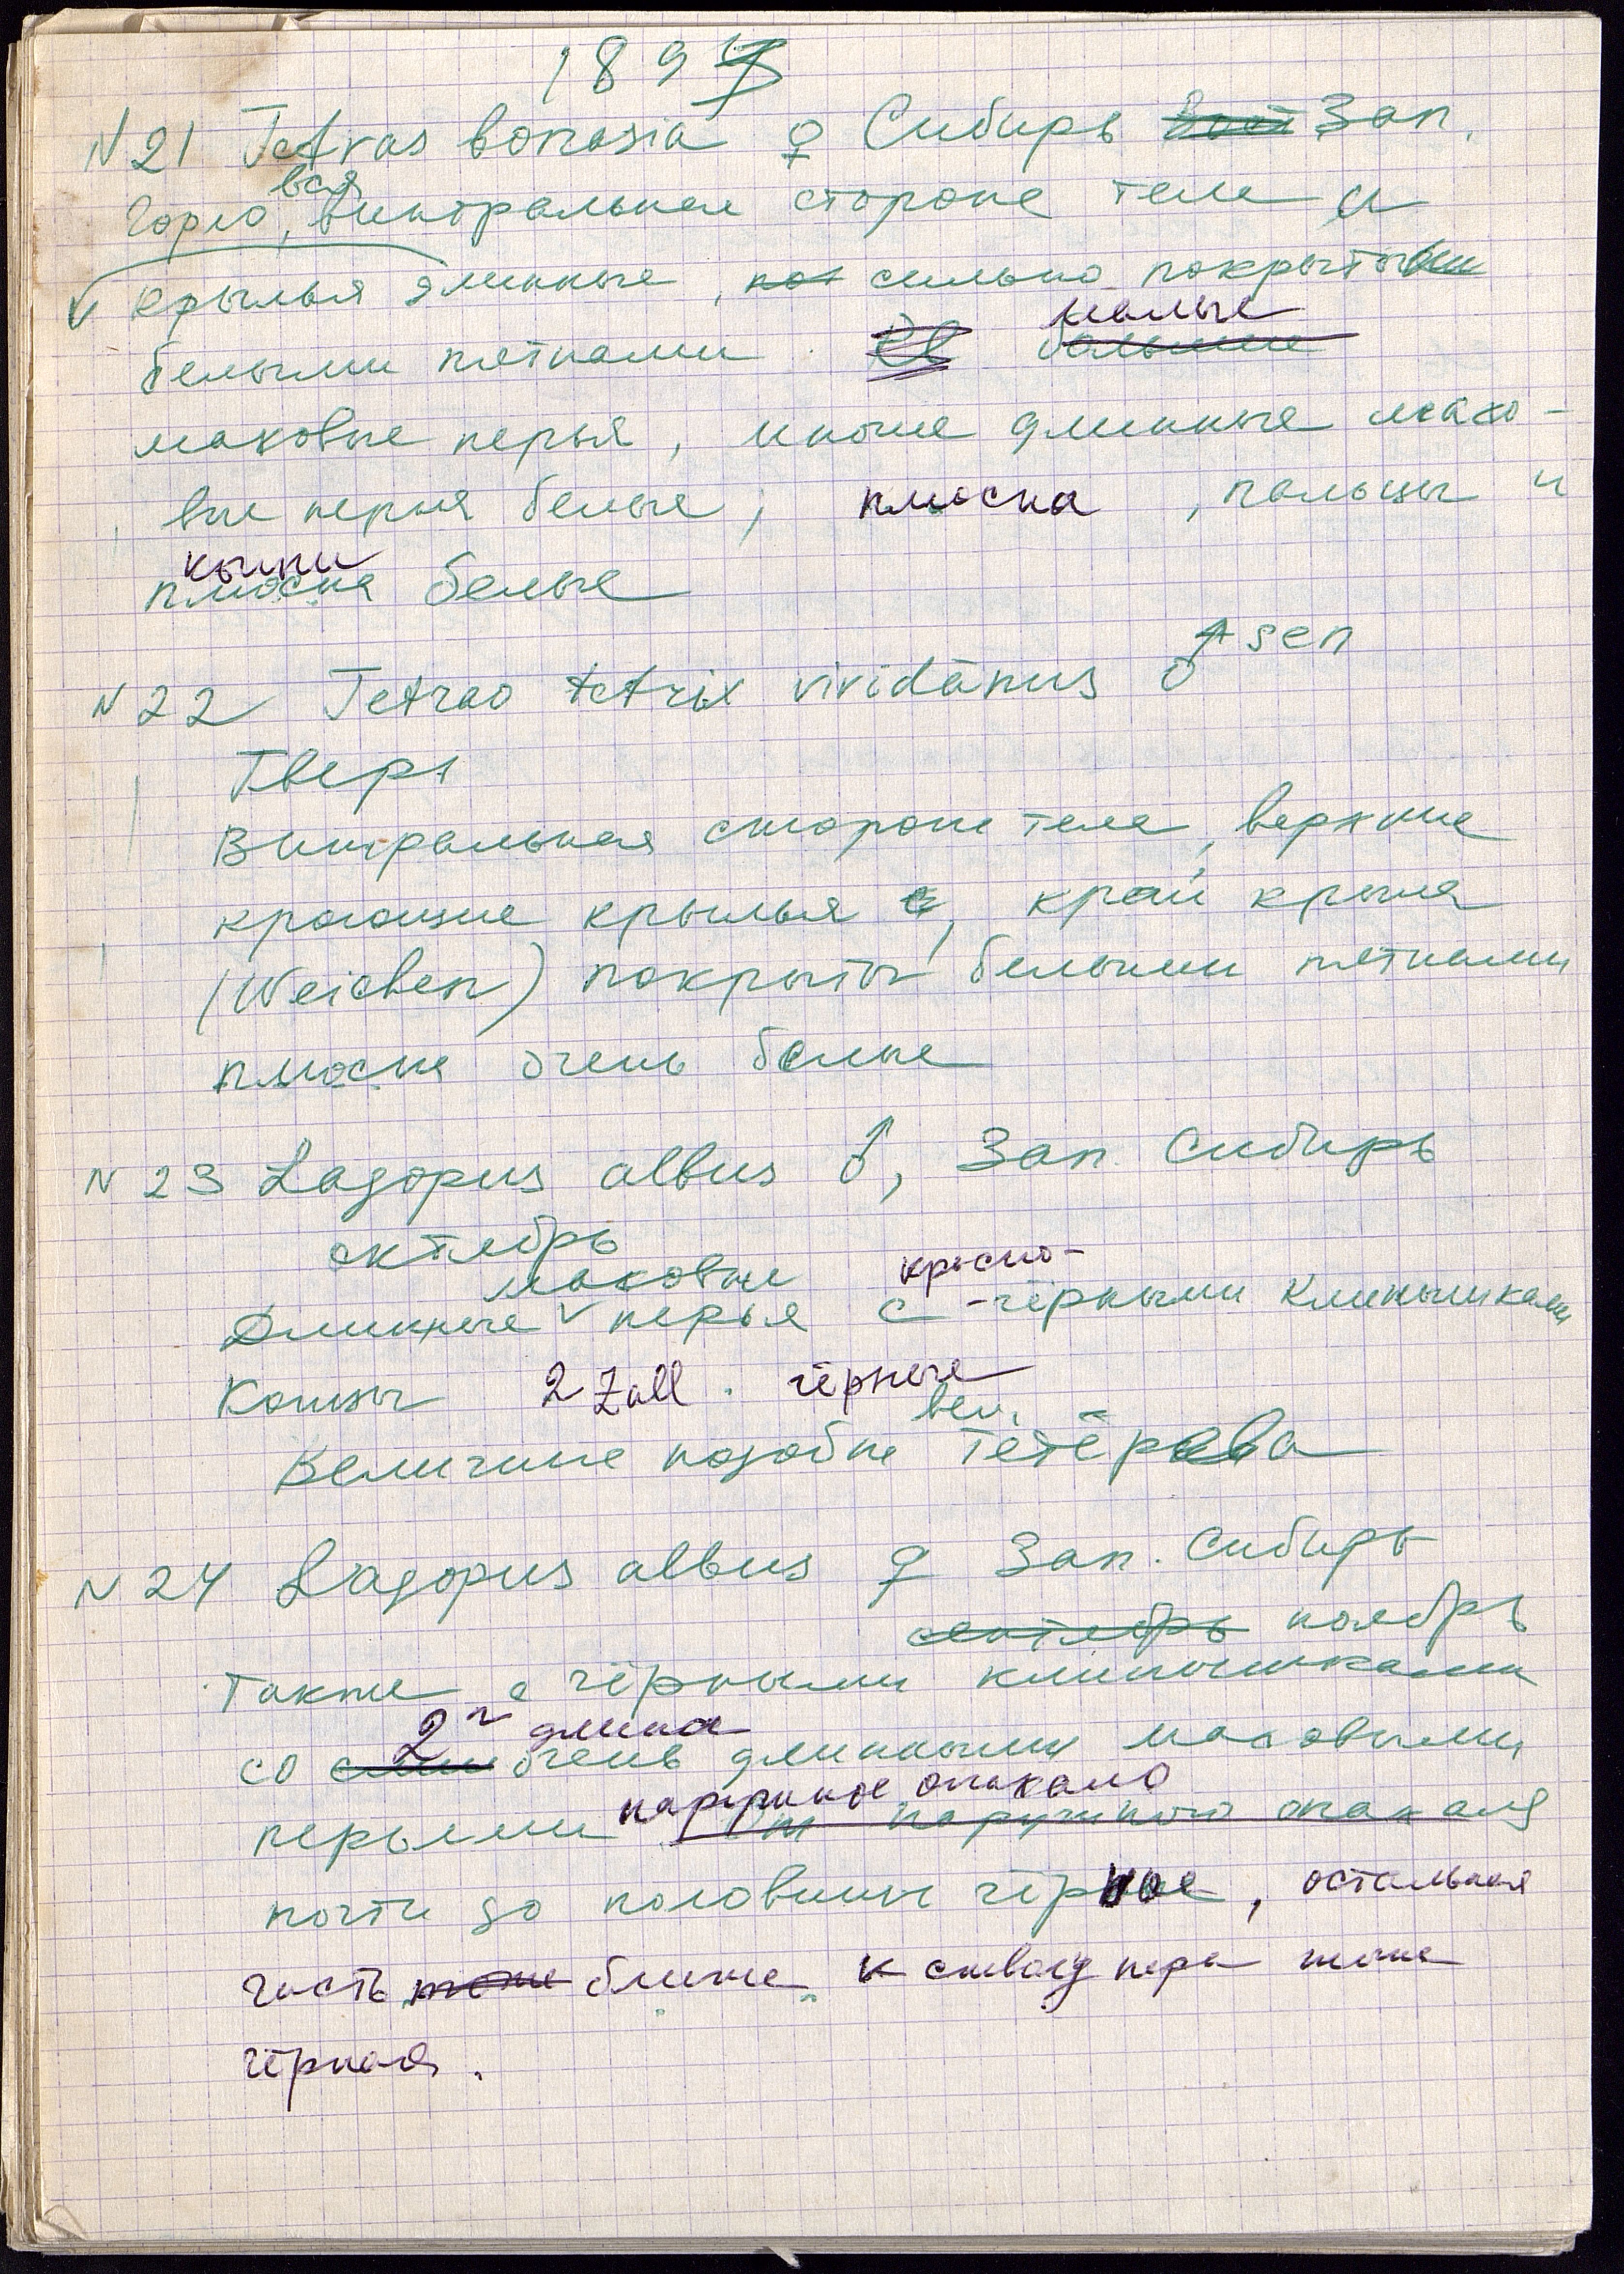 1897
N 21 Tetras bonasia ♀ Сибирь Зап.
вся
Горло, вентральная сторона тела и
крылья длинные, сильно покрыты
белыми пятнами. малые
маховые перья, иные длинные махо-
вые перья белые; плюсна, пальцы и
когти
плюсна белые
N 22 Tetrao tetrix viridanus ♂ sen
Тверь
Вентральная сторона тела, верхние
кроющие крылья, край крыла
(Weichen) покрыты белыми пятнами
плюсна очень белые
N 23 Lagopus albus ♂, Зап. Сибирь
октябрь
маховые красно-
Длинные перья с -чёрными клинышками
Концы 2 Zoll. чёрные
вел.
Величине подобие Тетёрева
N 24 Lagopus albus ♀ Зап. Сибирь
сентябрь ноябрь
также с чёрными клинышками
2" длина
со очень длинными маховыми
наружное опахало
перьями от наружного опахала
почти до половины чёрное, остальная
часть ближе к стволу пера тоже
чёрная.